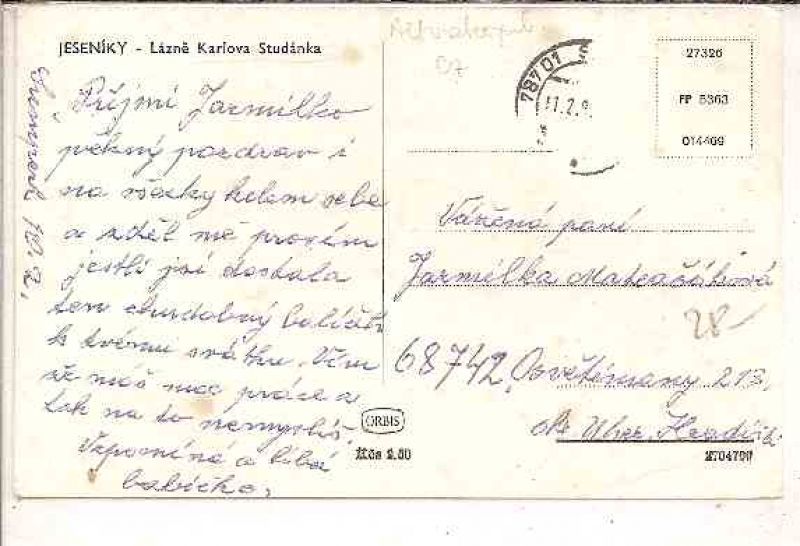 JESENÍKY - Lázně Karlova Studánka
Šumperk 10. 2.
Přijmi Jarmilko
pěkný pozdrav i
na všecky kolem sebe
a zděl mě prosím
jestli jsi dostala
ten chudobný balíček
k tvému svátku. Vím
že máš moc práce a
tak na to nemyslíš.
Vzpomíná a líbá
babička,
ORBIS
Kčs 2.50
787 01
11.2.
27326
FP 5363
014469
Vážená paní
Jarmilka
68742 Osvětimany 213,
okr Uher. Hradiště
28-